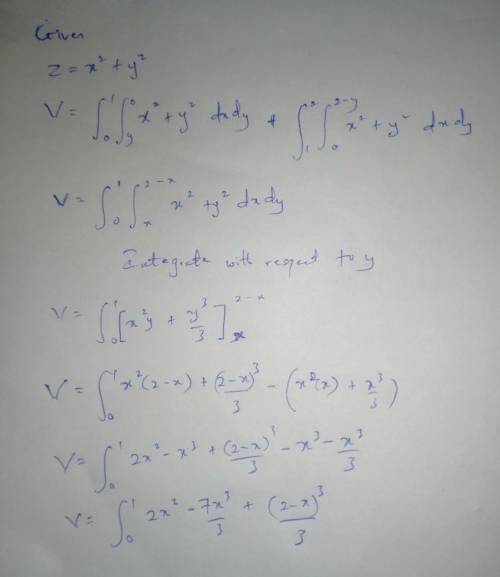 Given
z = x² + y²
V = ∫₀¹ ∫ᵧ⁰ x² + y² dxdy + ∫₁² ∫₀²⁻ʸ x² + y² dxdy
V = ∫₀¹ ∫ₓ²⁻ˣ x² + y² dxdy
Integrate with respect to y
V = ∫₀¹ [x²y + y³/3]ₓ²⁻ˣ
V = ∫₀¹ x²(2-x) + (2-x)³/3 - (x²(x) + x³/3)
V = ∫₀¹ 2x² - x³ + (2-x)³/3 - x³ - x³/3
V = ∫₀¹ 2x² - 7x³/3 + (2-x)³/3